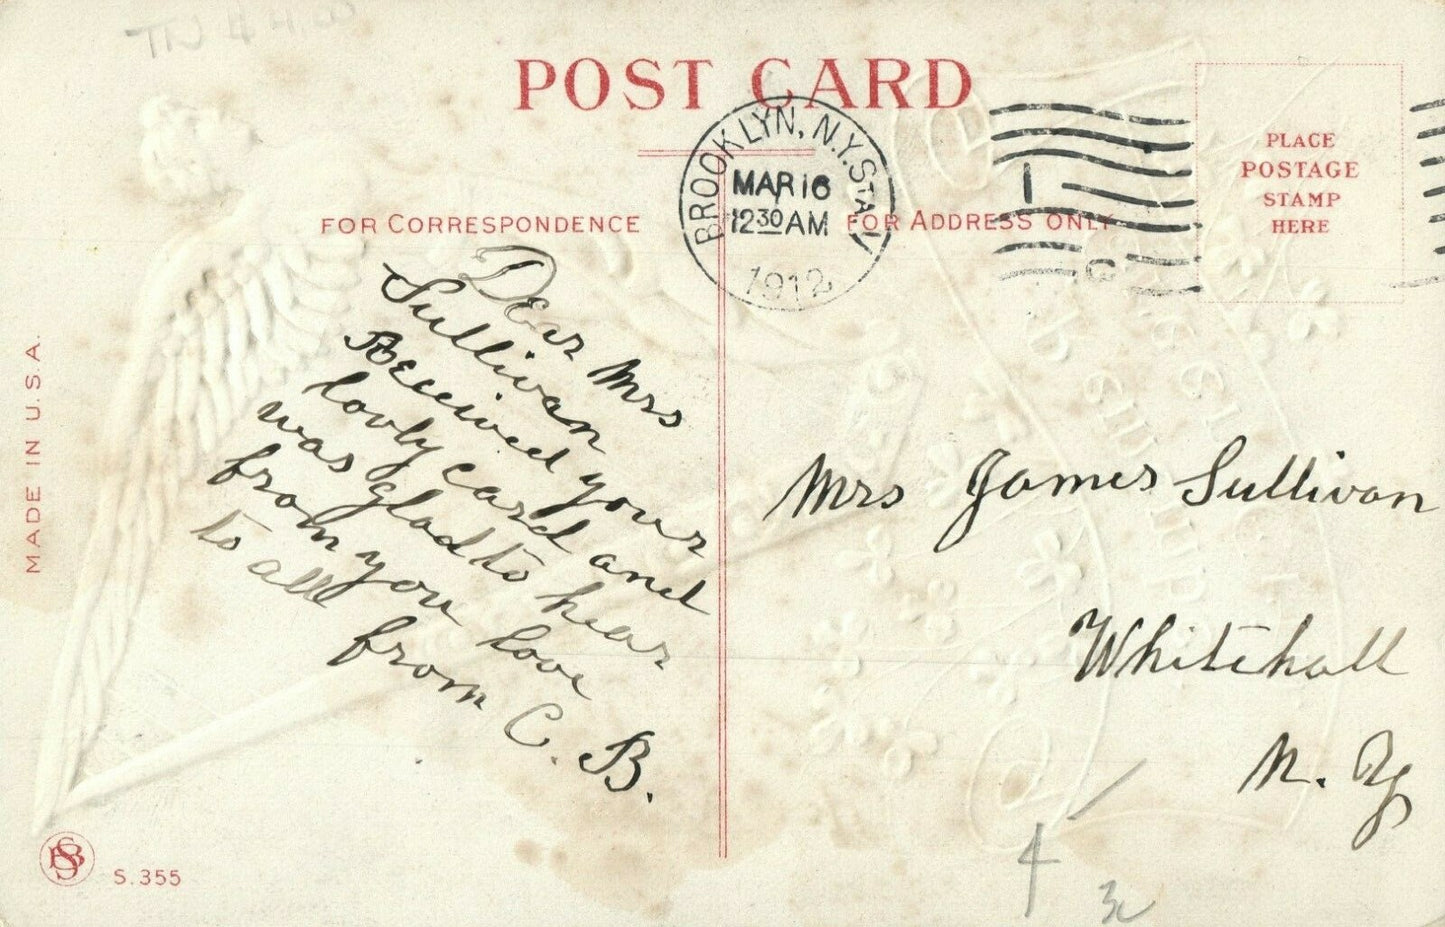 POST CARD
FOR CORRESPONDENCE
FOR ADDRESS ONLY
BROOKLYN, N.Y. STA.
MAR 16
12 30 AM
1912
PLACE
POSTAGE
STAMP
HERE
MADE IN U.S.A.
Dear Mrs
Sullivan
Received your
lovly card and
was glad to hear
from you love
to all
from C. B.
Mrs James Sullivan
Whitehall
N. Y
S. 355